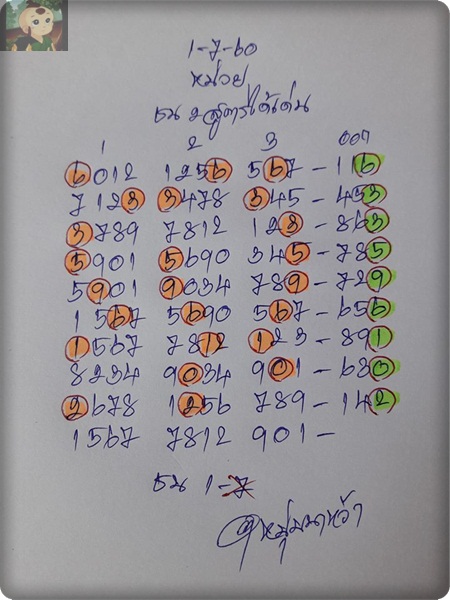 1-7-60
หน่วย
ชน 2 สูตรได้เด่น
1 2 3 ออก
6012 1256 567 - 116
7123 3478 345 - 453
3789 7812 123 - 863
5901 5690 345 - 785
5901 9034 789 - 729
1567 5690 567 - 656
1567 7812 123 - 891
8234 9034 901 - 630
2678 1256 789 - 142
1567 7812 901 -
ชน 1-7